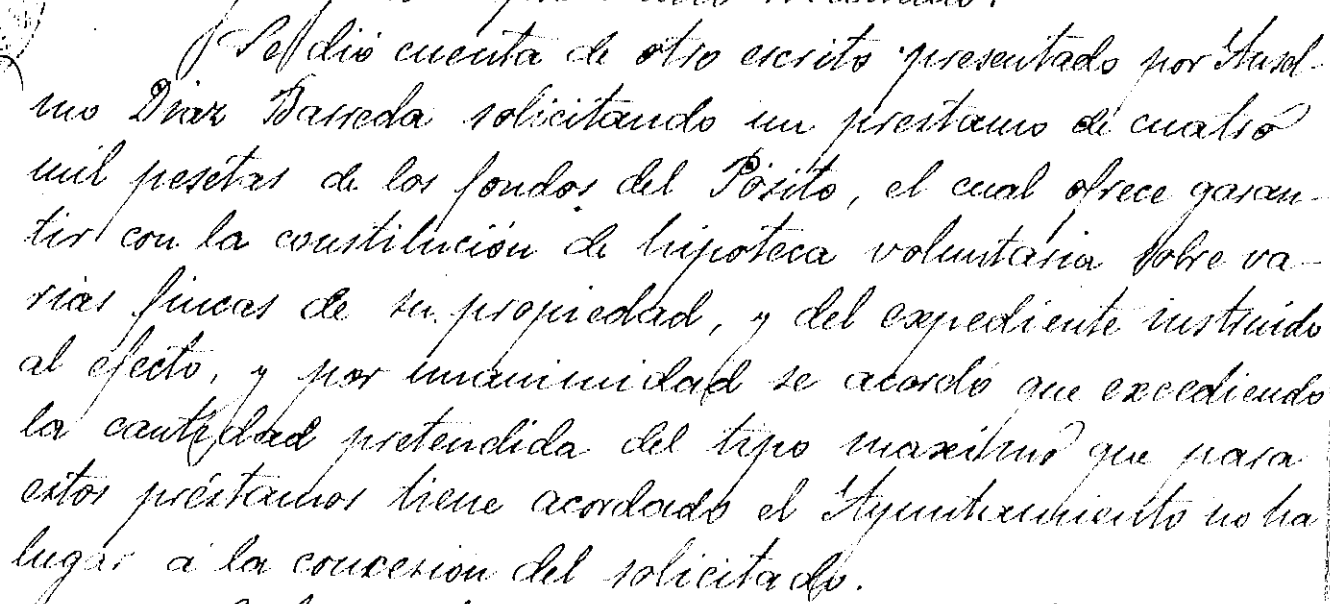 Se dió cuenta de otro escrito presentado por Ansel-
mo Diaz Barreda solicitando un prestamo de cuatro
mil pesetas de los fondos del Pósito, el cual ofrece garan-
tir con la constitución de hipoteca voluntaria sobre va-
rias fincas de su propiedad, y del expediente instruido
al efecto, y por unanimidad se acordó que excediendo
la cantidad pretendida del tipo maximo que para
estos préstamos tiene acordado el Ayuntamiento no ha
lugar á la concesion del solicitado.